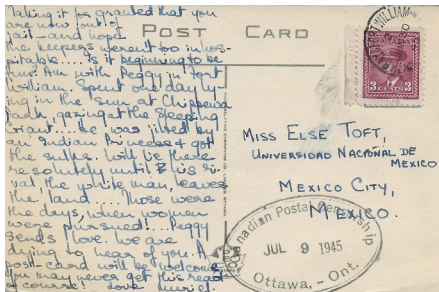 Taking it for granted that you
are now out of
jail — and hope
the keepers weren't too inhos-
pitable.... Is it beginning to be
fun? Am with Peggy in Fort
William. Spent one day ly-
ing in the sun at Chippewa
Park, gazing at the Sleeping
Giant... He was jilted by
an Indian Princess & got
the sulks. Will lie there
resolutely until his ri-
val, the white man, leaves
the land.... Those were
the days, when women
were pursued!... Peggy
sends love. We are
dying to hear of you. A
post card will be welcome
You may never get this read
of course! Love Muriel.
POST CARD
FORT WILLIAM
3 CENTS 3
MISS ELSE TOFT,
UNIVERSIDAD NACIONAL DE
MEXICO
MEXICO CITY,
MEXICO.
Canadian Postal Censorship
JUL 9 1945
Ottawa, - Ont.